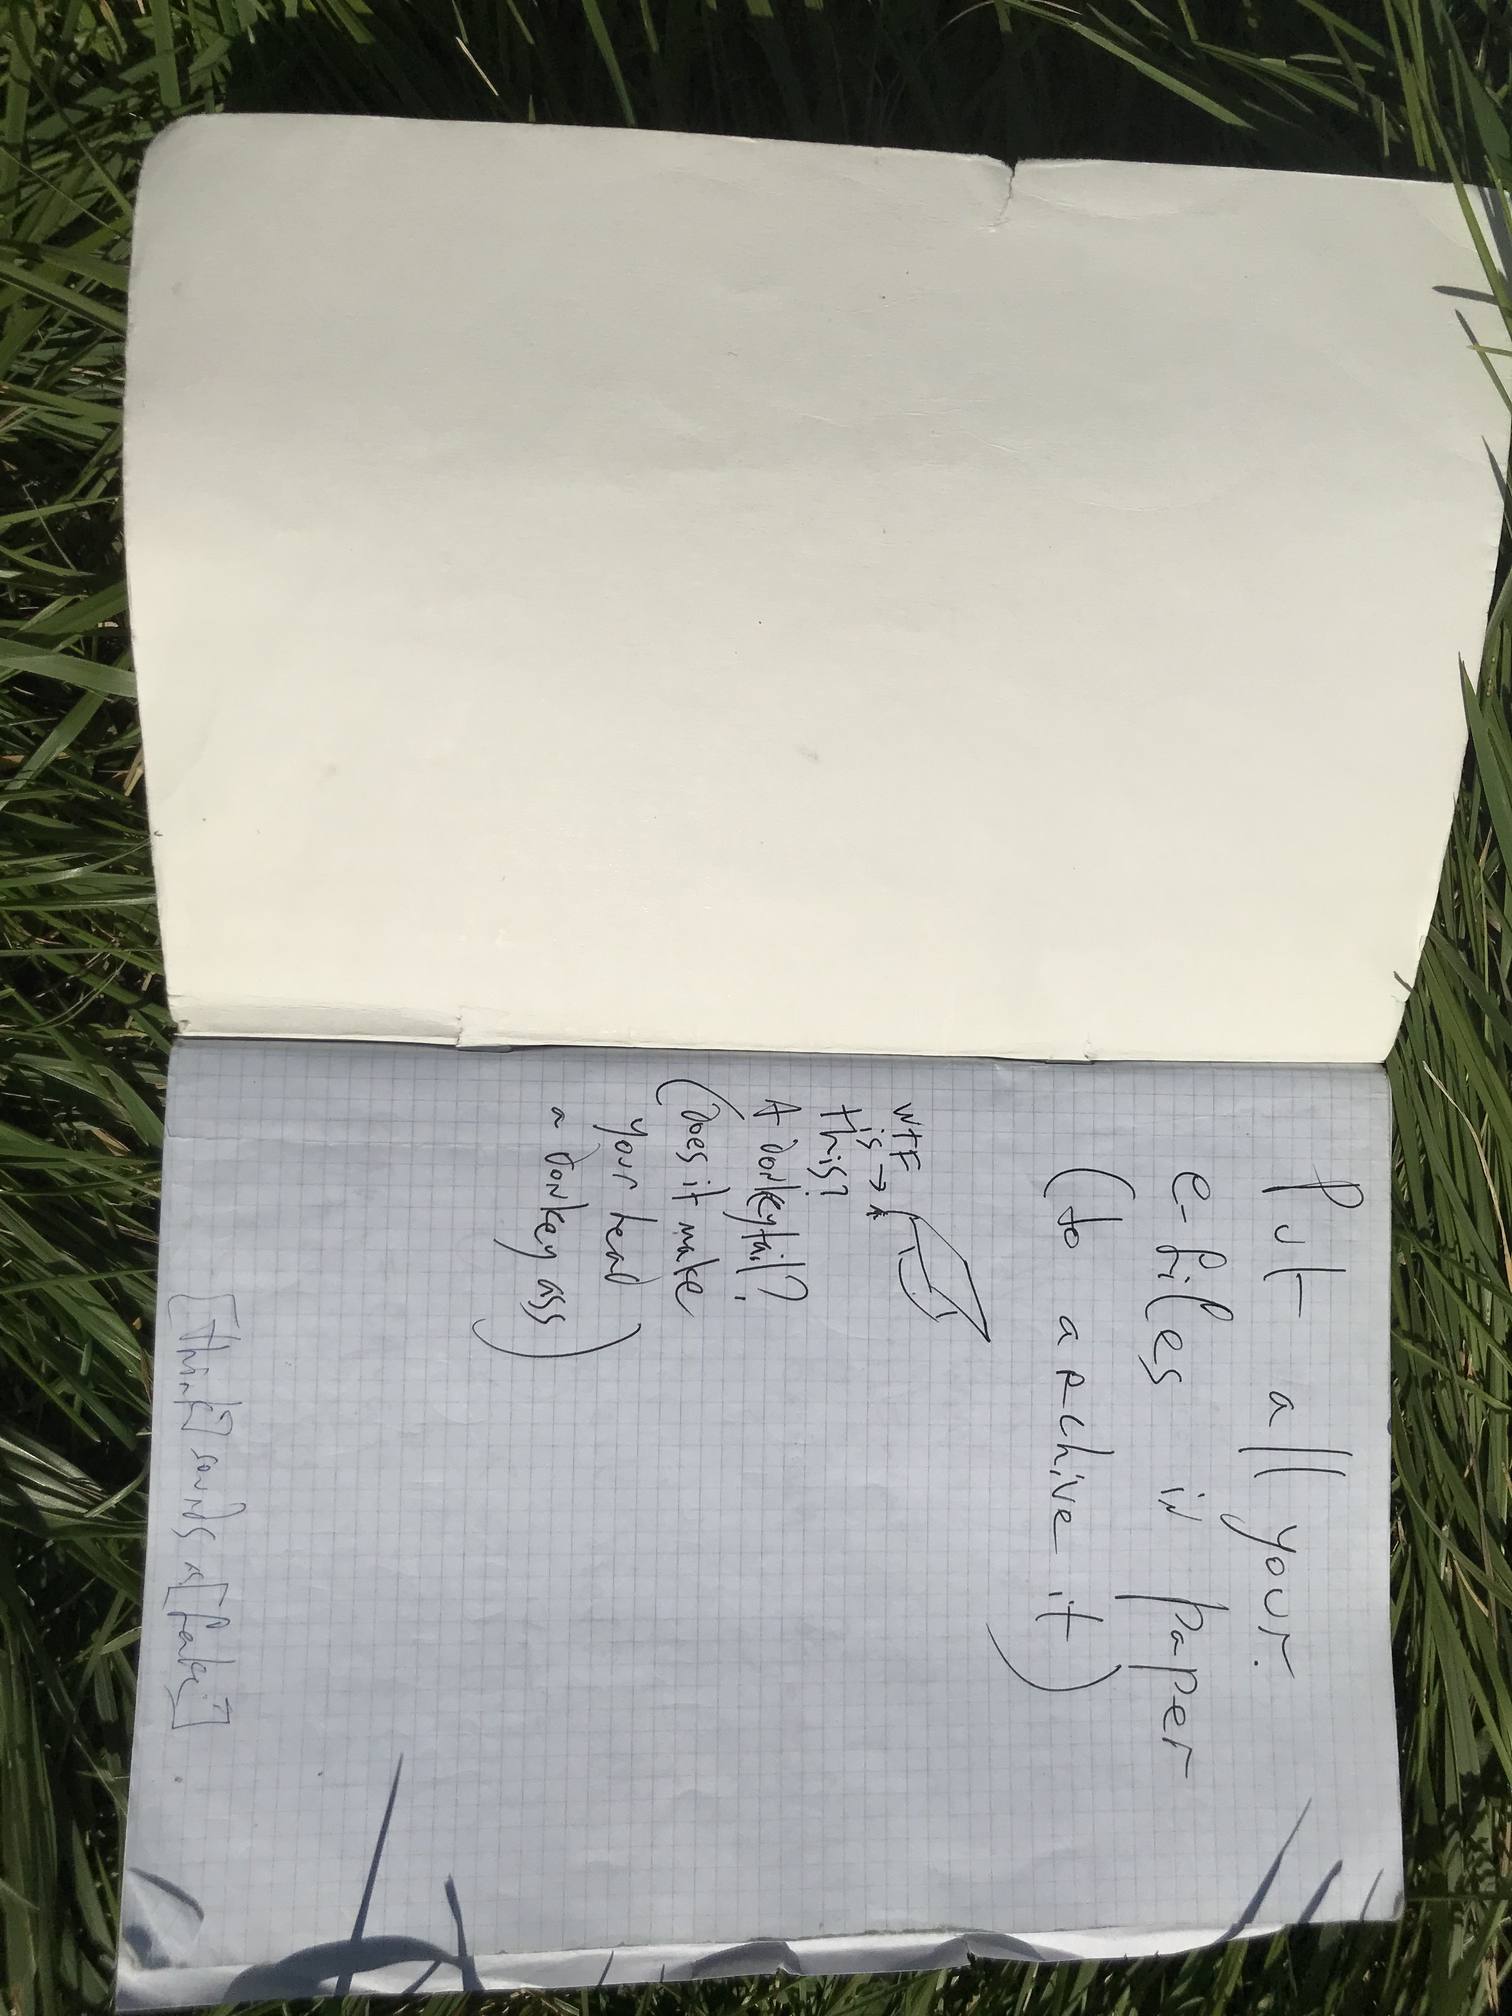 Put all your
e-files in paper
(to archive it)
WTF
is →
this?
A donkeytail?
(Does it make
your head
a donkey ass)
[Think] sounds as [fake]